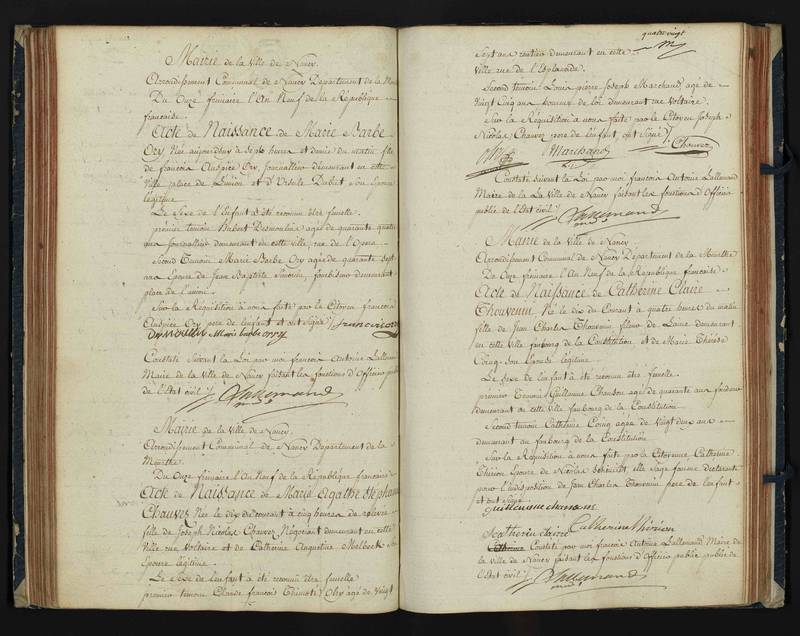 Mairie de la Ville de Nancy.
Arrondissement Communal de Nancy Departement de la
Du Onze frimaire l'An Neuf de la République
francaise.
Acte de Naissance de Marie Barbe
Ory Née aujourd'huy à Sept heures et demie du matin fille
de francois Ory, Journallier demeurant en cette
Ville place de l'union et d'Ursule son Epouse
legitime.
Le Sexe de l'Enfant a été reconnu être femelle.
premier temoin Hubert Desmoulin agé de quarante quatre
ans journallier demeurant en cette ville, rue de l'Opera
Second Temoin Marie Barbe Ory agée de quarante Sept
ans Epouse de Jean Baptiste demeurant
place de l'union.
Sur la Réquisition à nous faite par le Citoyen francois
Ory pere de l'enfant et ont Signé francois ory
Marie barbe orry
Constaté Suivant la Loi par moi francois Antoine Lallemand
Maire de la Ville de Nancy faisant les fonctions d'Officier public
de l'Etat civil Lallemand
Mairie de la Ville de Nancy
Arrondissement Communal de Nancy Departement de la
Meurthe.
Du Onze frimaire l'An Neuf de la République francaise
Acte de Naissance de Marie Agathe Stephanie
Chauvez Née le dix du courant à cinq heures de relevée
fille de Joseph Nicolas Chauvez Négociant demeurant en cette
Ville rue Voltaire et de Catherine Son
Epouse légitime.
Le Sexe de l'enfant a été reconnu être femelle
premier temoin Claude francois Ory agé de Vingt
quatre vingt
Sept ans rentier demeurant en cette
Ville rue de l'Esplanade.
Second temoin Louis pierre Joseph Marchand agé de
Vingt Cinq ans homme de loi demeurant rue Voltaire.
Sur la Réquisition à nous faite par le Citoyen Joseph
Nicolas Chauvez pere de l'enfant, ont Signé Chauvez
Marchand
Constaté suivant la Loi par moi francois Antoine Lallemand
Maire de la Ville de Nancy faisant les fonctions d'Officier
public de l'Etat civil Lallemand
Mairie de la Ville de Nancy
Arrondissement Communal de Nancy Departement de la Meurthe
Du Onze frimaire l'An Neuf de la République francaise.
Acte de Naissance de Catherine Claire
Thouvenin Née le dix du Courant à quatre heures du matin
fille de Jean Charles Thouvenin fileur de Laine demeurant
en cette ville faubourg de la Constitution et de Marie Thérèse
Coinq Son Epouse légitime.
Le Sexe de l'enfant à été reconnu être femelle.
premier Temoin Guillaume Chanson agé de quarante ans
demeurant en cette Ville faubourg de la Constitution
Second temoin Catherine Coinq agée de Vingt deux ans
demeurant au faubourg de la Constitution
Sur la Réquisition à nous faite par la Citoyenne Catherine
Thirion Epouse de Nicolas elle Sage femme declarante
pour l'indisposition de Jean Charles Thouvenin pere de l'enfant
et ont Signé
guillaume chansons
Catherine thirion
Constaté par moi francois Antoine Lallemand Maire de la
Ville de Nancy faisant les fonctions d'Officier public public de
l'Etat civil Lallemand